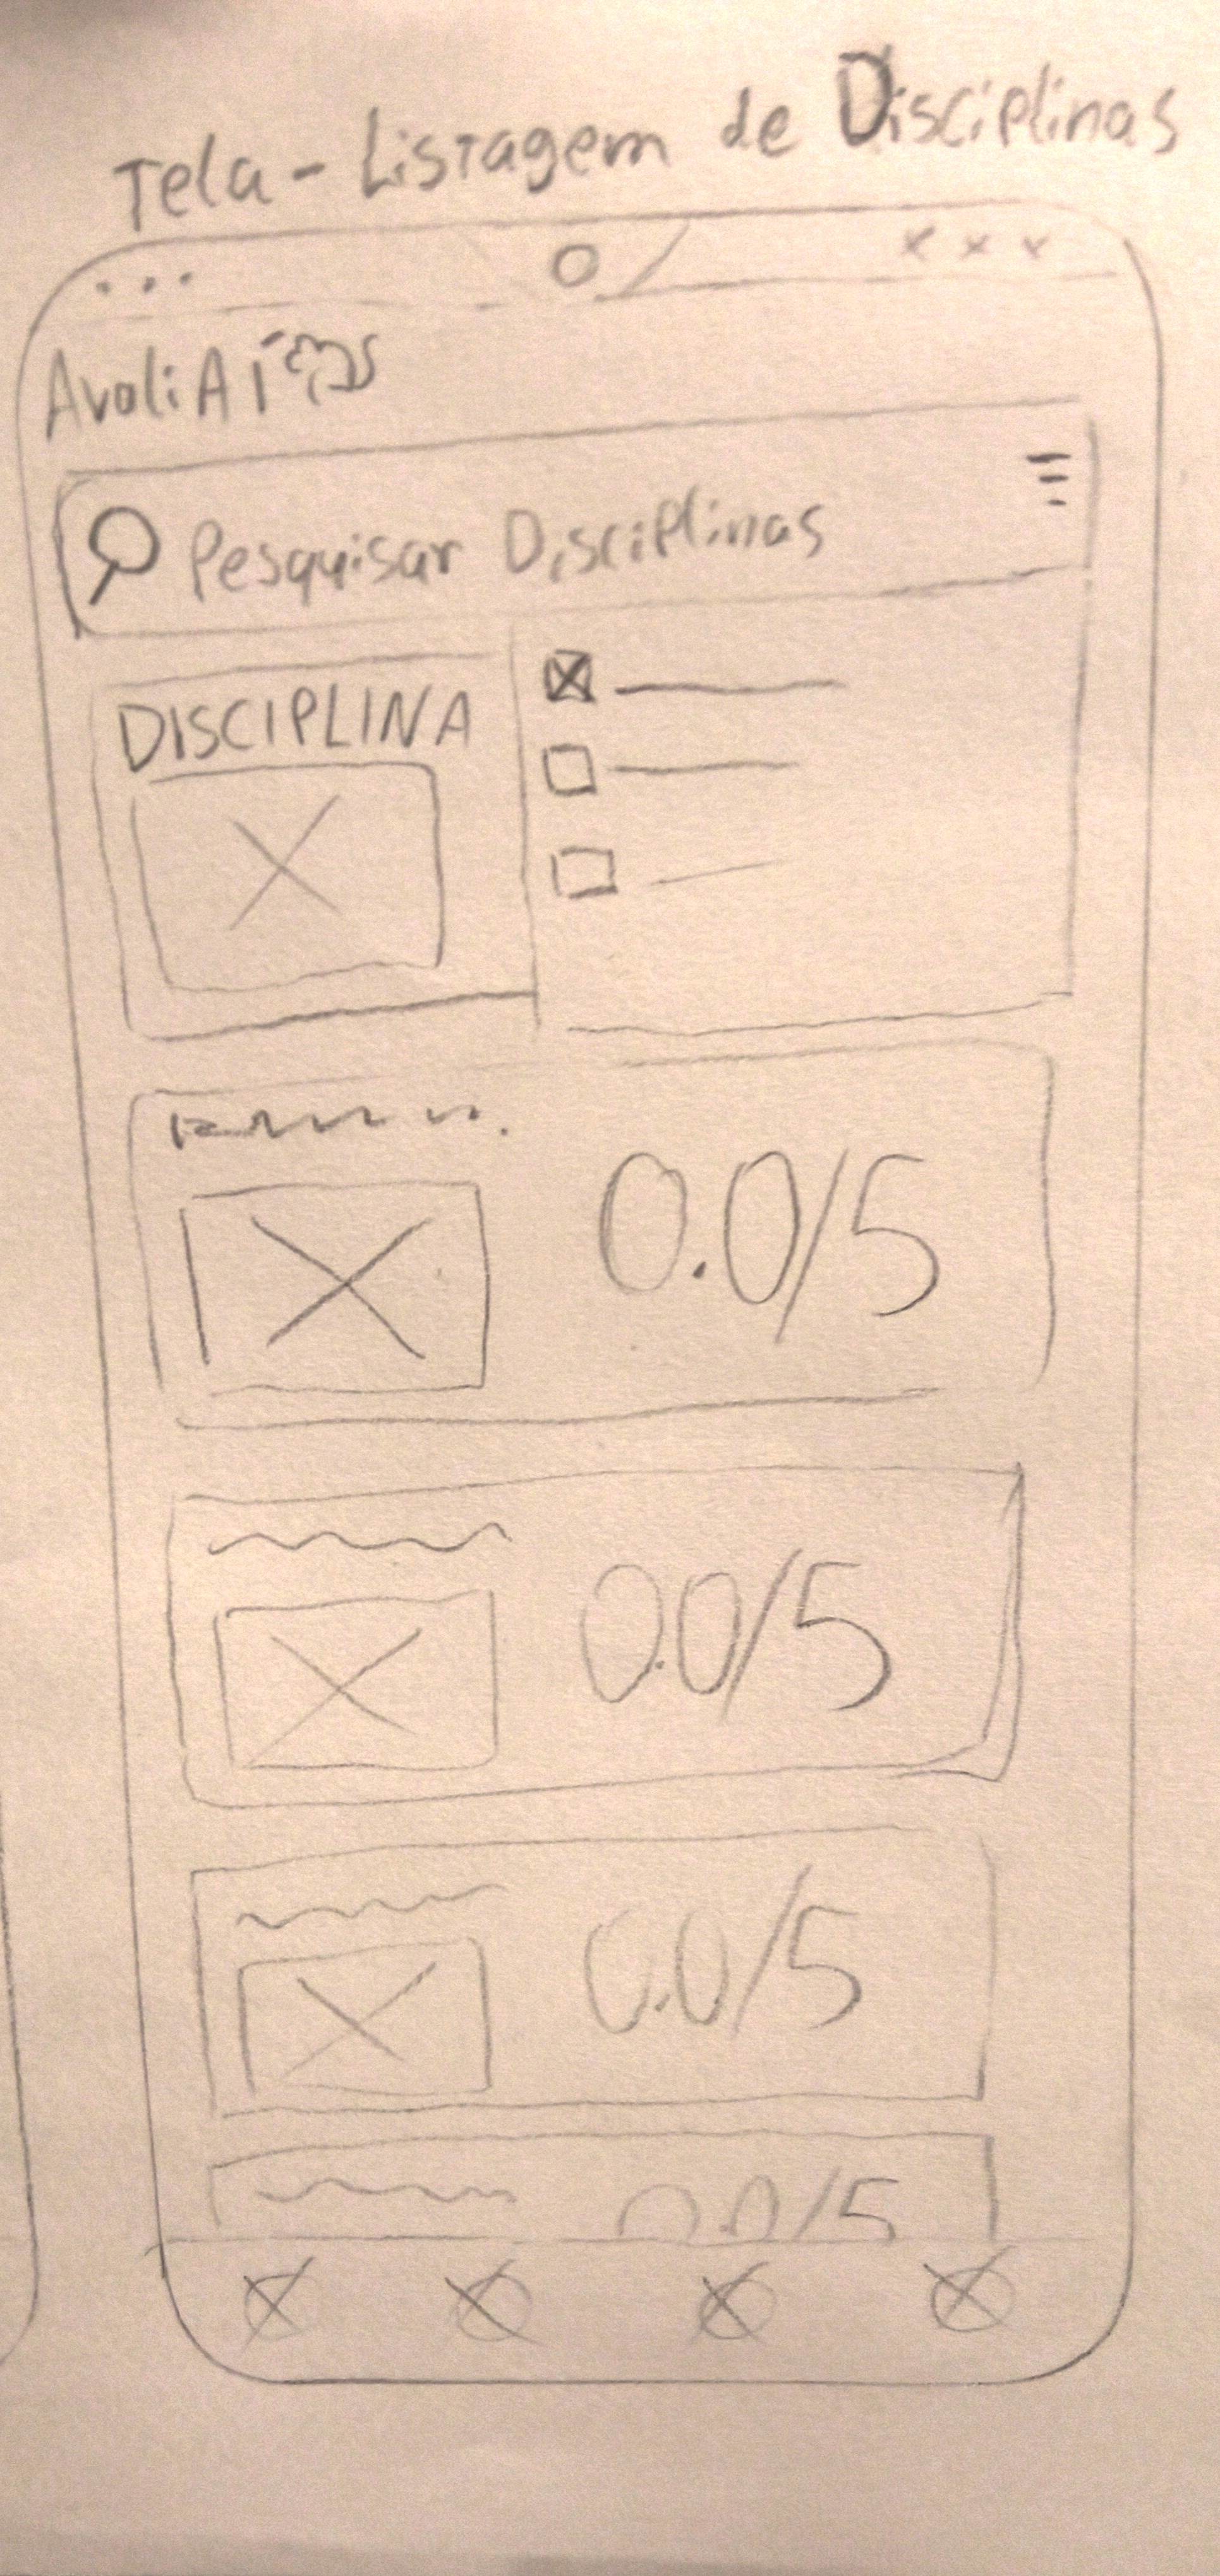 Tela - Listagem de Disciplinas
AvaliAí
Pesquisar Disciplinas
DISCIPLINA
0.0/5
0.0/5
0.0/5
0.0/5